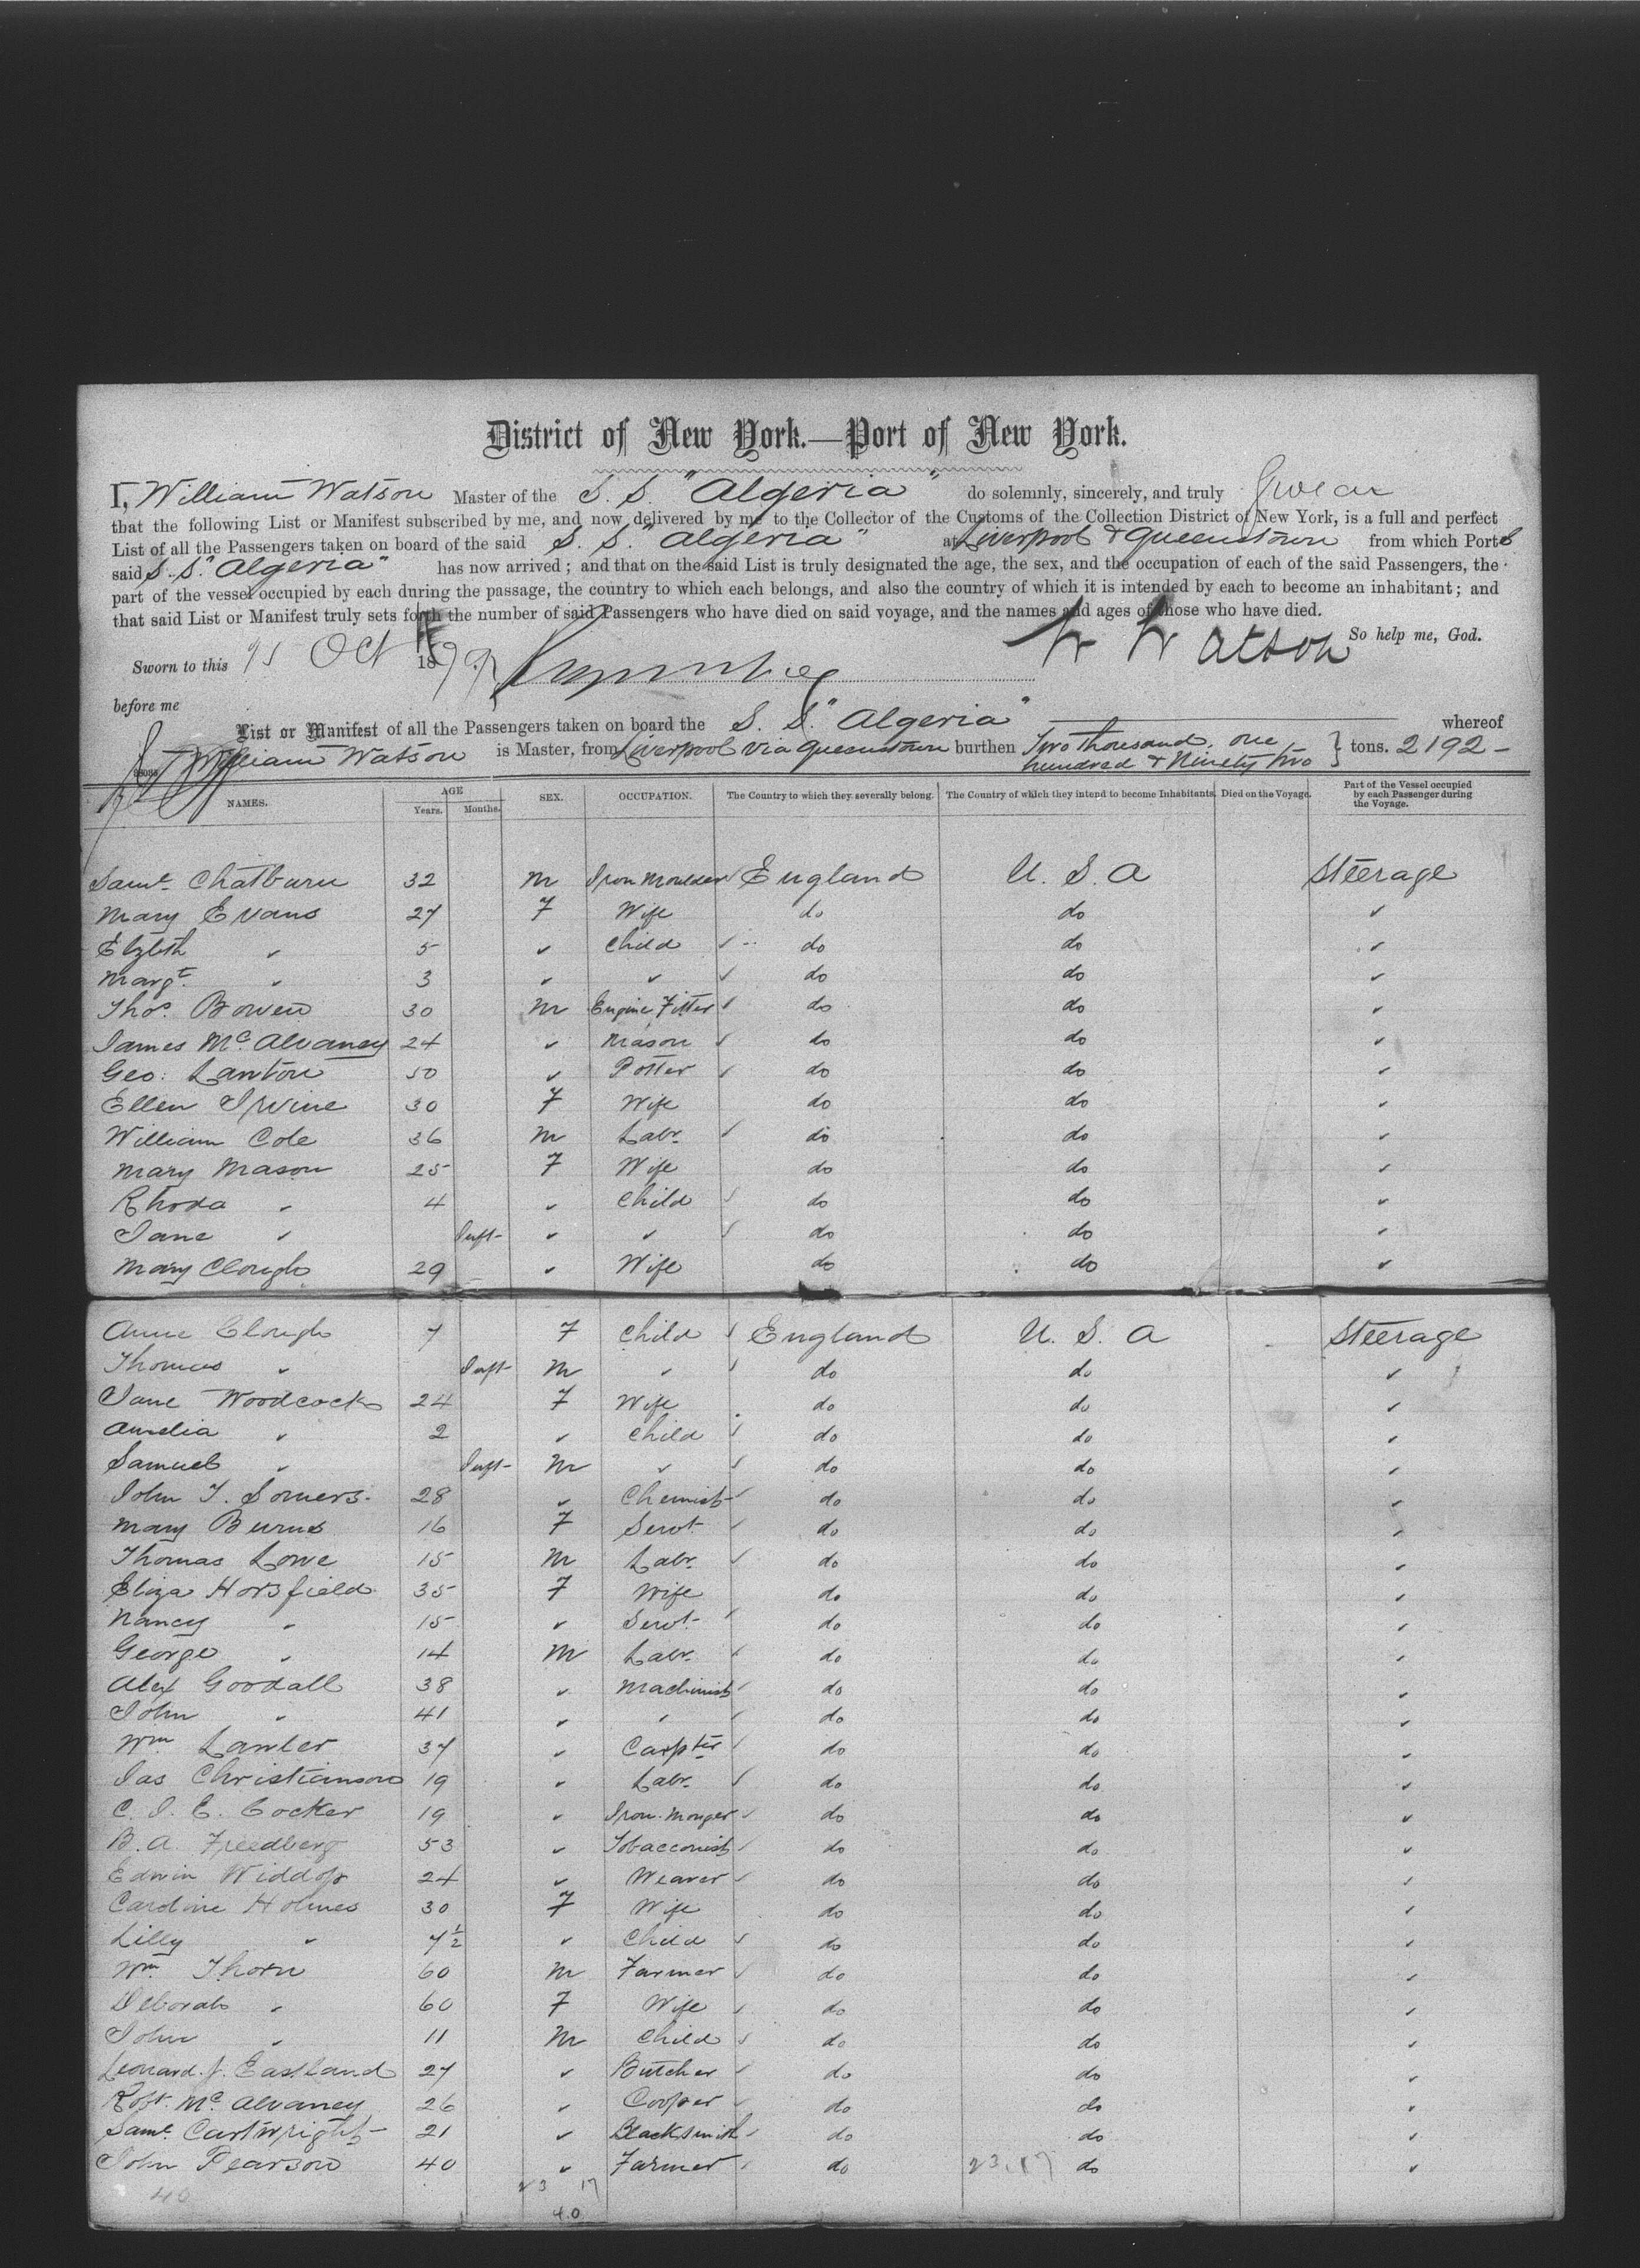 District of New York.—Port of New York.
I, William Watson Master of the S. S. "Algeria" do solemnly, sincerely, and truly Swear
that the following List or Manifest subscribed by me, and now delivered by me to the Collector of the Customs of the Collection District of New York, is a full and perfect
List of all the Passengers taken on board of the said S. S. "Algeria" at Liverpool & Queenstown from which Ports
said S. S. "Algeria" has now arrived; and that on the said List is truly designated the age, the sex, and the occupation of each of the said Passengers, the
part of the vessel occupied by each during the passage, the country to which each belongs, and also the country of which it is intended by each to become an inhabitant; and
that said List or Manifest truly sets forth the number of said Passengers who have died on said voyage, and the names and ages of those who have died.
W Watson So help me, God.
Sworn to this Oct 1879
before me
List or Manifest of all the Passengers taken on board the S. S. "Algeria" whereof
William Watson is Master, from Liverpool via Queenstown burthen Two Thousand, one hundred & Ninety Two } tons. 2192 -
NAMES. AGE Years. Months. SEX. OCCUPATION. The Country to which they severally belong. The Country of which they intend to become Inhabitants. Died on the Voyage. Part of the Vessel occupied by each Passenger during the Voyage.
Saml. Chatburn 32 M Iron Moulder England U. S. A Steerage
Mary Evans 27 F Wife do do "
Elzbth " 5 " Child do do "
Margt. " 3 " " do do "
Thos. Bowen 30 M Engine Fitter do do "
James McAlvaney 24 " Mason do do "
Geo: Lanton 50 " Potter do do "
Ellen Irvine 30 F Wife do do "
William Cole 36 M Labr. do do "
Mary Mason 25 F Wife do do "
Rhoda " 4 " Child do do "
Jane " Inft " " do do "
Mary Clough 29 " Wife do do "
Anne Clough 7 F Child England U. S. A Steerage
Thomas " Inft M " do do "
Jane Woodcock 24 F Wife do do "
Amelia " 2 " Child do do "
Samuel " Inft M " do do "
John T. Somers. 28 " Chemist do do "
Mary Burns 16 F Servt do do "
Thomas Lowe 15 M Labr. do do "
Eliza Horsfield 35 F Wife do do "
Nancy " 15 " Servt. do do "
George " 14 M Labr. do do "
Alex Goodall 38 " Machinist do do "
John " 41 " " do do "
Wm Lawler 37 " Carpter do do "
Jas Christianson 19 " Labr. do do "
C. J. E. Cocker 19 " Iron Monger do do "
B. A. Freedberg 53 " Tobacconist do do "
Edwin Widdop 24 " Weaver do do "
Caroline Holmes 30 F Wife do do "
Lilly " 7½ " Child do do "
Wm. Thorn 60 M Farmer do do "
Deborah " 60 F Wife do do "
John " 11 M Child do do "
Leonard J. Eastland 27 " Butcher do do "
Robt. McAlvaney 26 " Cooper do do "
Saml. Cartwright 21 " Blacksmith do do "
John Pearson 40 " Farmer do 23.17 do "
40 23 17
40